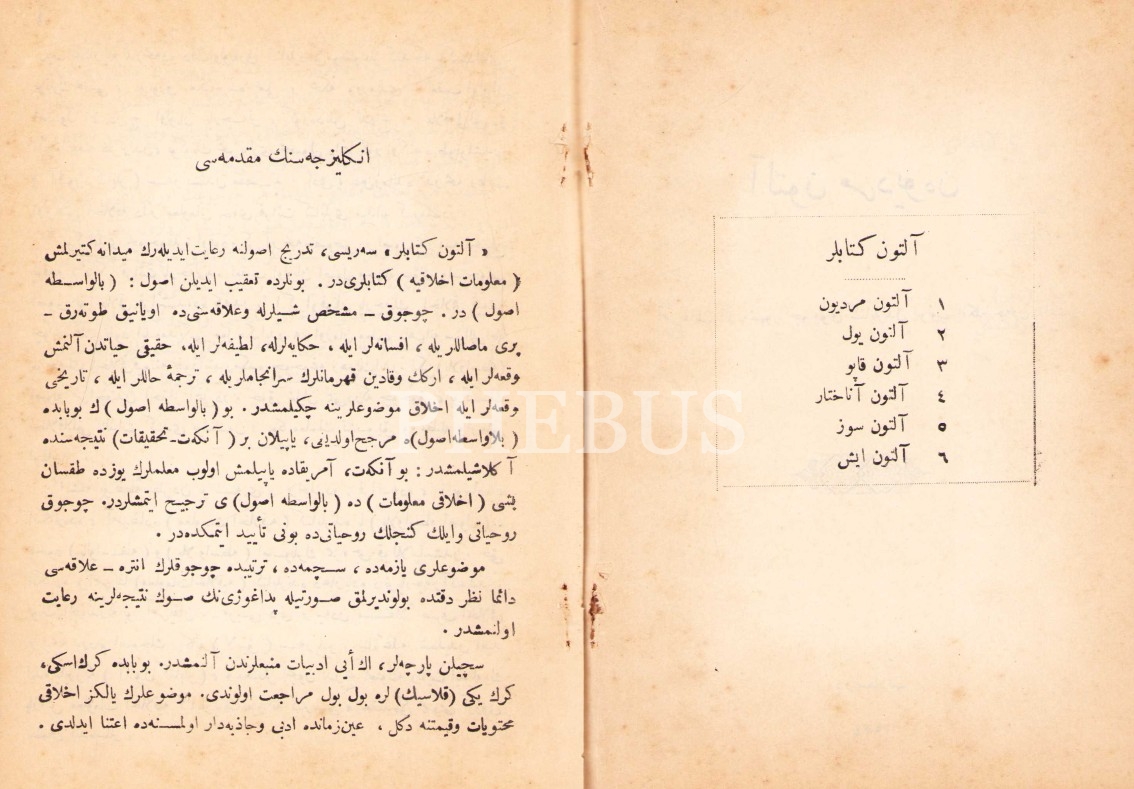 آلتون كتابلر
١ آلتون مرديون
٢ آلتون يول
٣ آلتون قاپو
٤ آلتون آناختار
٥ آلتون سوز
٦ آلتون ايش
انكليزجه‌سنك مقدمه‌سى
« آلتون كتابلر » سه‌ريسى، تدريج اصولنه رعايت ايديله‌رك ميدانه كتيرلمش
( معلومات اخلاقيه ) كتابلرى‌در . بونلرده تعقيب ايديلن اصول : ( بالواسـطه
اصول ) در . چوجوق ـ مشخص شـيلرله وعلاقه‌سنى‌ده اويانيق طوته‌رق ـ
پرى ماصاللريله ، افسانه‌لر ايله ، حكايه‌لرله، لطيفه‌لر ايله، حقيقى حياتدن آلنمش
وقعه‌لر ايله ، اركك وقادين قهرمانلرك سرانجاملريله ، ترجمهٔ حاللر ايله ، تاريخى
وقعه‌لر ايله اخلاق موضوعلرينه چكيلمشدر . بو ( بالواسطه اصول ) ك بوبابده
( بلاواسطه‌اصول)ه مرجح‌اولديغى، ياپيلان بر ( آنكه‌ت ـ تحقيقات) نتيجه‌سنده
آكلاشيلمشدر : بو آنكه‌ت، آمريقاده ياپيلمش اولوب معلملرك يوزده طقسان
بشى ( اخلاقى معلومات ) ده ( بالواسطه اصول) ى ترجيح ايتمشلردر. چوجوق
روحياتى وايلك كنجلك روحياتى‌ده بونى تأييد ايتمكده‌در .
موضوعلرى يازمه‌ده ، سـچمه‌ده ، ترتيبده چوجوقلرك انتره ـ علاقه‌سى
دائما نظر دقتده بولونديرلمق صـورتيله پداغوژى‌نك صـوك نتيجه‌لرينه رعايت
اولنمشدر .
سچيلن پارچه‌لر، اك أيى ادبيات منبعلرندن آلنمشدر. بوبابده كرك‌اسكى،
كرك يكى (قلاسيك) لره بول بول مراجعت اولوندى. موضوعلرك يالكز اخلاقى
محتويات وقيمتنه دكل ، عين‌زمانده ادبى وجاذبه‌دار اولمسـنه‌ده اعتنا ايدلدى .
PHEBUS